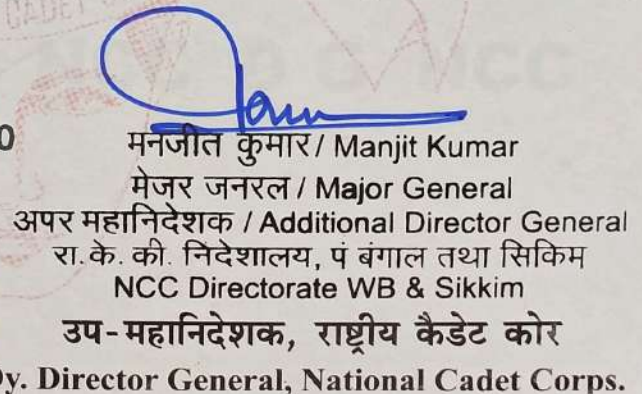 CADET
NCC
0
मनजीत कुमार / Manjit Kumar
मेजर जनरल / Major General
अपर महानिदेशक / Additional Director General
रा.के.की. निदेशालय, पं बंगाल तथा सिकिम
NCC Directorate WB & Sikkim
उप-महानिदेशक, राष्ट्रीय कैडेट कोर
Dy. Director General, National Cadet Corps.